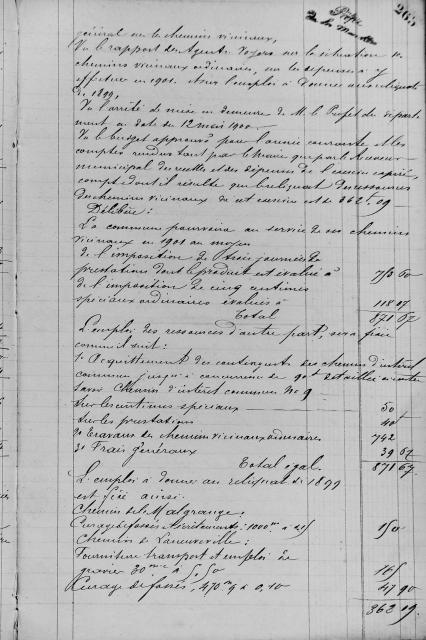 263
Préfet
de la Meurthe
général sur les chemins vicinaux,
Vu le rapport des Agents Voyers sur la situation des
chemins vicinaux ordinaires, sur les dépenses à y
effectuer en 1901 et sur l'emploi à donner aux reliquats
de 1899,
Vu l'arrêté de mise en demeure de M. le Préfet du départ-
ment en date du 12 mai 1900
Vu le budget approuvé pour l'année courante et les
comptes rendus tant par le Maire que par le Receveur
municipal des recettes et des dépenses de l'exercice expiré,
compte dont il résulte que le reliquat des ressources
des chemins vicinaux du dit exercice est de 362f 09
Délibère:
La commune pourvoira au service de ses chemins
vicinaux en 1901 au moyen
de l'imposition de trois journées de
prestations dont le produit est évalué à 753 60
de l'imposition de cinq centimes
spéciaux ordinaires évalués à 118 07
Total 871 67
L'emploi des ressources d'autre part, sera fixée
comme suit:
1º Acquittement des contingents des chemins d'intérêt
commun jusqu'à concurrence de 90f détaillée ci-contre
savoir Chemin d'intérêt commun No 9
Sur les centimes spéciaux 50
Sur les prestations 40
2º Travaux des chemins vicinaux ordinaires 742
3º Frais généraux 39 67
Total égal. 871 67
L'emploi à donner au reliquat de 1899
est fixé ainsi:
Chemin de Malgrange
Curage de fossés et dérasements: 1000m à 0,15 150
Chemin de Laneuveville:
Fourniture transport et emploi de
gravier 30mc à 5,50 165
Curage de fossés, 470m 9 à 0,10 47 90
362 09.